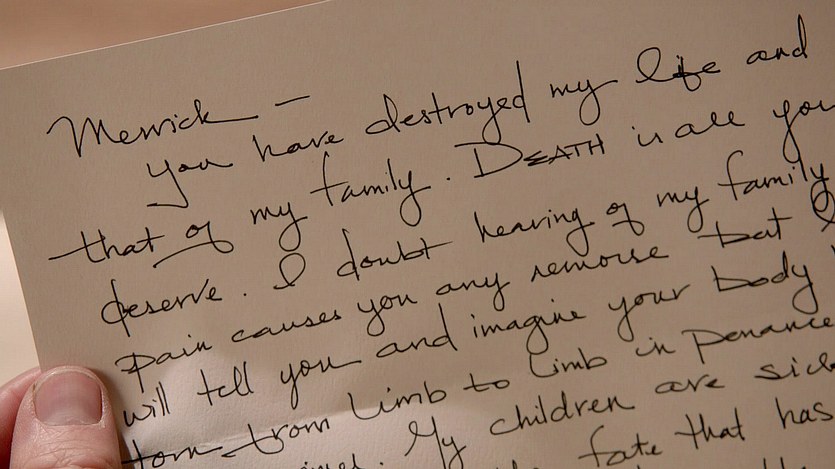 Merrick —
you have destroyed my life and
that of my family. DEATH is all you
deserve. I doubt hearing of my family
pain causes you any remorse but I
will tell you and imagine your body
torn from limb to limb in penance
My children are sick
fate that has